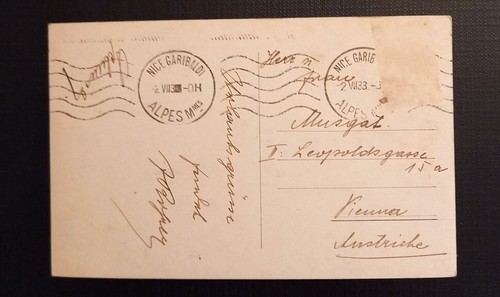 NICE GARIBALDI
2 VII 33 -0H
ALPES Mmes
NICE GARIBALDI
2 VII 33
ALPES Mmes
Herr u
frau
Musgat
II. Leopoldsgasse
15a
Vienna
Autriche
Urlaubsgrüsse